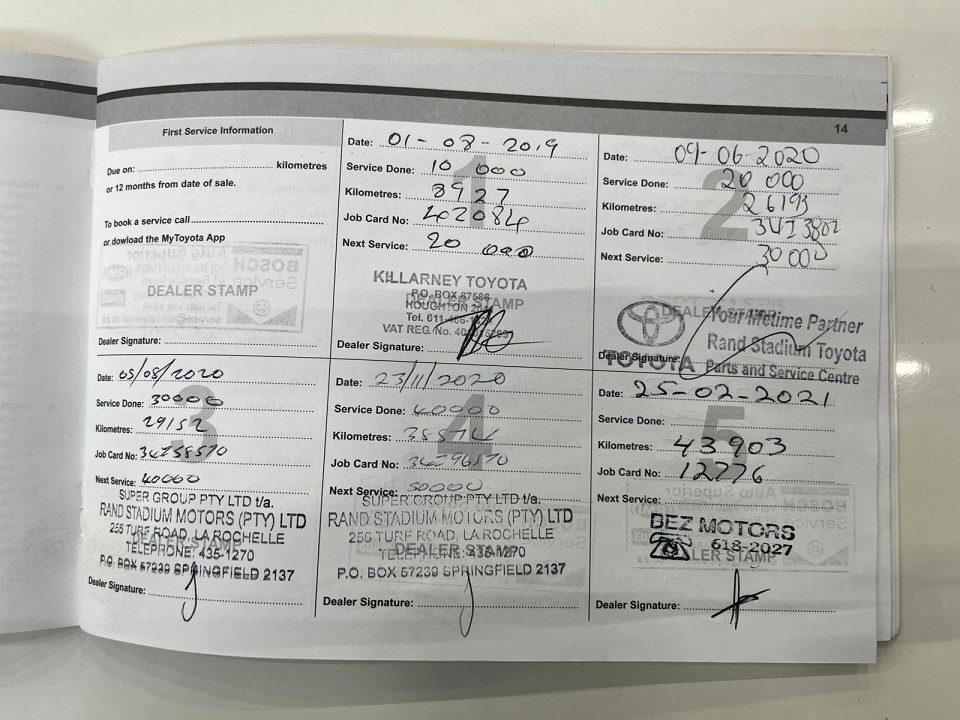 14
First Service Information
Due on: ........ kilometres
or 12 months from date of sale.
To book a service call........
or dowload the MyToyota App
DEALER STAMP
Dealer Signature:
1
Date: 01-08-2019
Service Done: 10 000
Kilometres: 8927
Job Card No: 42084
Next Service: 20 000
KILLARNEY TOYOTA
P.O. BOX 87586
HOUGHTON
Tel. 011-
VAT REG. No.
DEALER STAMP
Dealer Signature:
2
Date: 09-06-2020
Service Done: 20 000
Kilometres: 26193
Job Card No:
Next Service: 30000
DEALER STAMP
Your lifetime Partner
Rand Stadium Toyota
Parts and Service Centre
TOYOTA
Dealer Signature:
3
Date: 05/08/2020
Service Done: 30000
Kilometres: 29152
Job Card No:
Next Service: 40000
SUPER GROUP PTY LTD t/a.
RAND STADIUM MOTORS (PTY) LTD
256 TURF ROAD, LA ROCHELLE
TELEPHONE: 435-1270
P.O. BOX 57239 SPRINGFIELD 2137
DEALER STAMP
Dealer Signature:
4
Date: 23/11/2020
Service Done: 40000
Kilometres:
Job Card No:
Next Service: 50000
SUPER GROUP PTY LTD t/a.
RAND STADIUM MOTORS (PTY) LTD
256 TURF ROAD, LA ROCHELLE
DEALER STAMP
P.O. BOX 57239 SPRINGFIELD 2137
Dealer Signature:
5
Date: 25-02-2021
Service Done:
Kilometres: 43903
Job Card No: 12776
Next Service:
BEZ MOTORS
618-2027
DEALER STAMP
Dealer Signature: